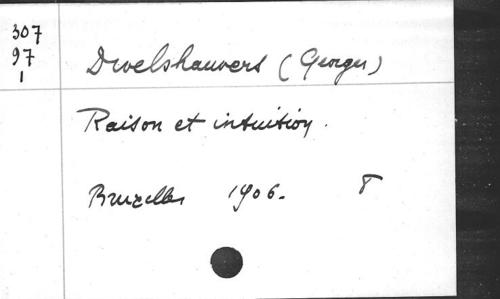 307
97
1
Dwelshauvers (Georges)
Raison et intuition.
Bruxelles 1906. 8